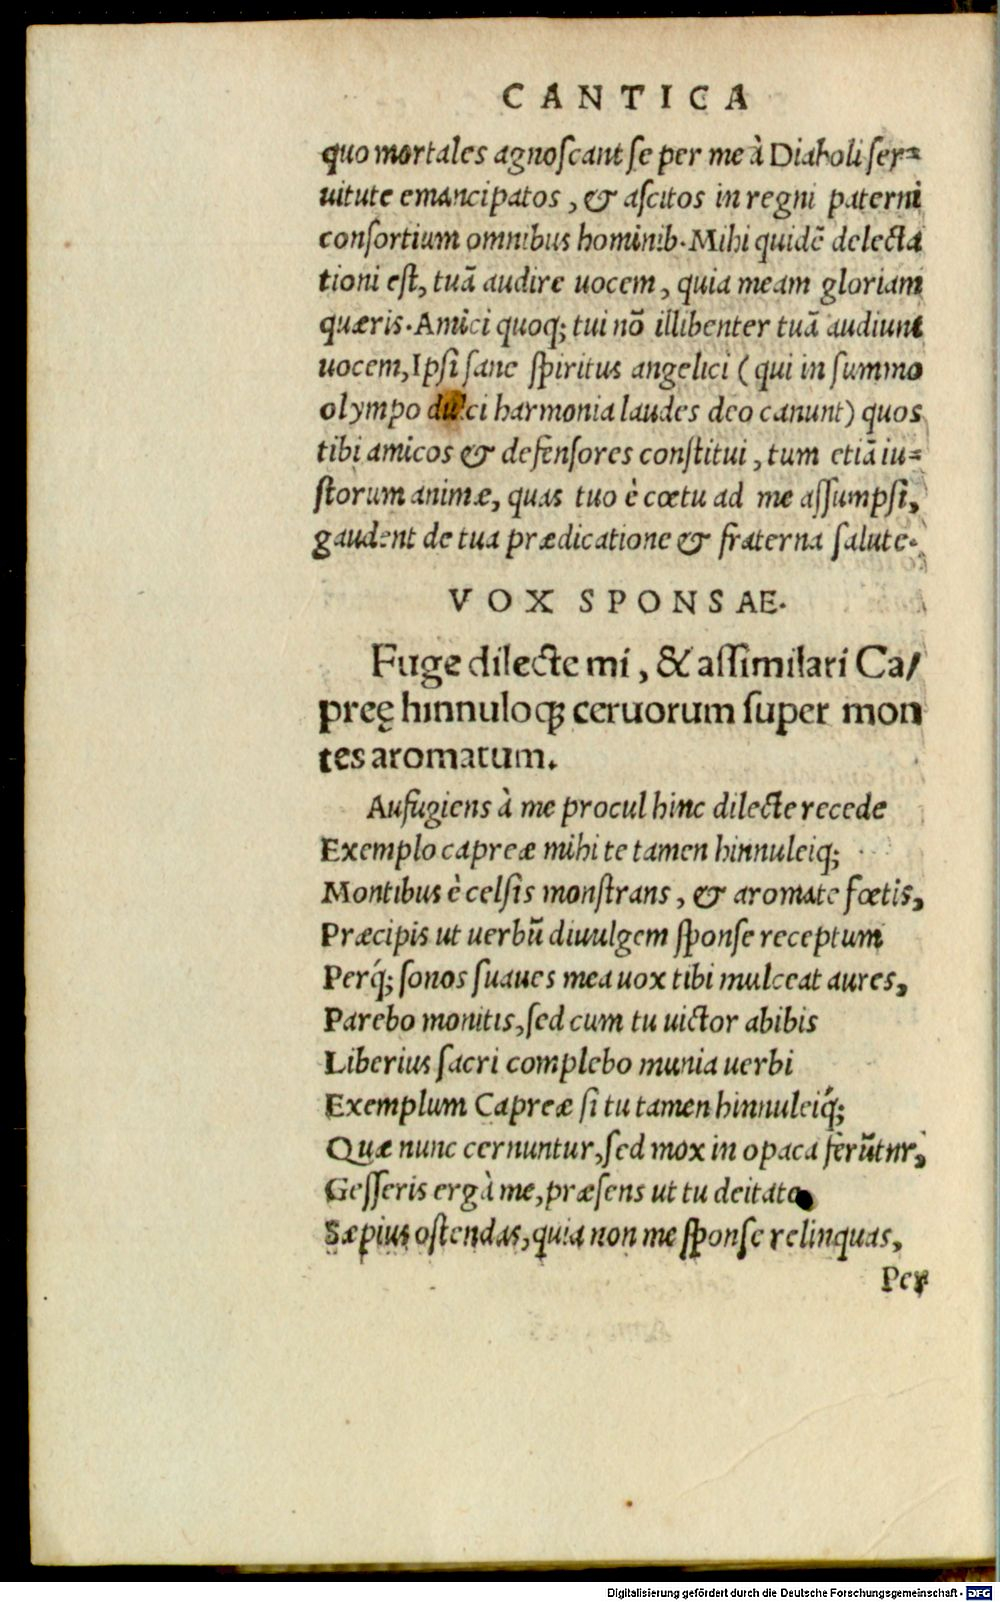 CANTICA
quo mortales agnoſcant ſe per me à Diaboli ſer=
uitute emancipatos, & aſcitos in regni paterni
conſortium omnibus hominib. Mihi quidē delecta
tioni eſt, tuā audire uocem, quia meam gloriam
quæris. Amici quoq; tui nō illibenter tuā audiunt
uocem, Ipſi ſane ſpiritus angelici (qui in ſummo
olympo dulci harmonia laudes deo canunt) quos
tibi amicos & defenſores conſtitui, tum etiā iu=
ſtorum animæ, quas tuo è cœtu ad me aſſumpſi,
gaudent de tua prædicatione & fraterna ſalute.
VOX SPONSAE.
Fuge dilecte mi, & aſſimilari Ca/
preę hinnuloq; ceruorum ſuper mon
tes aromatum.
Aufugiens à me procul hinc dilecte recede
Exemplo capreæ mihi te tamen hinnuleiq;
Montibus è celſis monſtrans, & aromate fœtis,
Præcipis ut uerbū diuulgem ſponſe receptum
Perq́; ſonos ſuaues mea uox tibi mulceat aures,
Parebo monitis, ſed cum tu uictor abibis
Liberius ſacri complebo munia uerbi
Exemplum Capreæ ſi tu tamen hinnuleiq́;
Quæ nunc cernuntur, ſed mox in opaca ferūtur,
Geſſeris ergà me, præſens ut tu deitate
Sæpius oſtendas, quia non me ſponſe relinquas,
Per
Digitalisierung gefördert durch die Deutsche Forschungsgemeinschaft - DFG